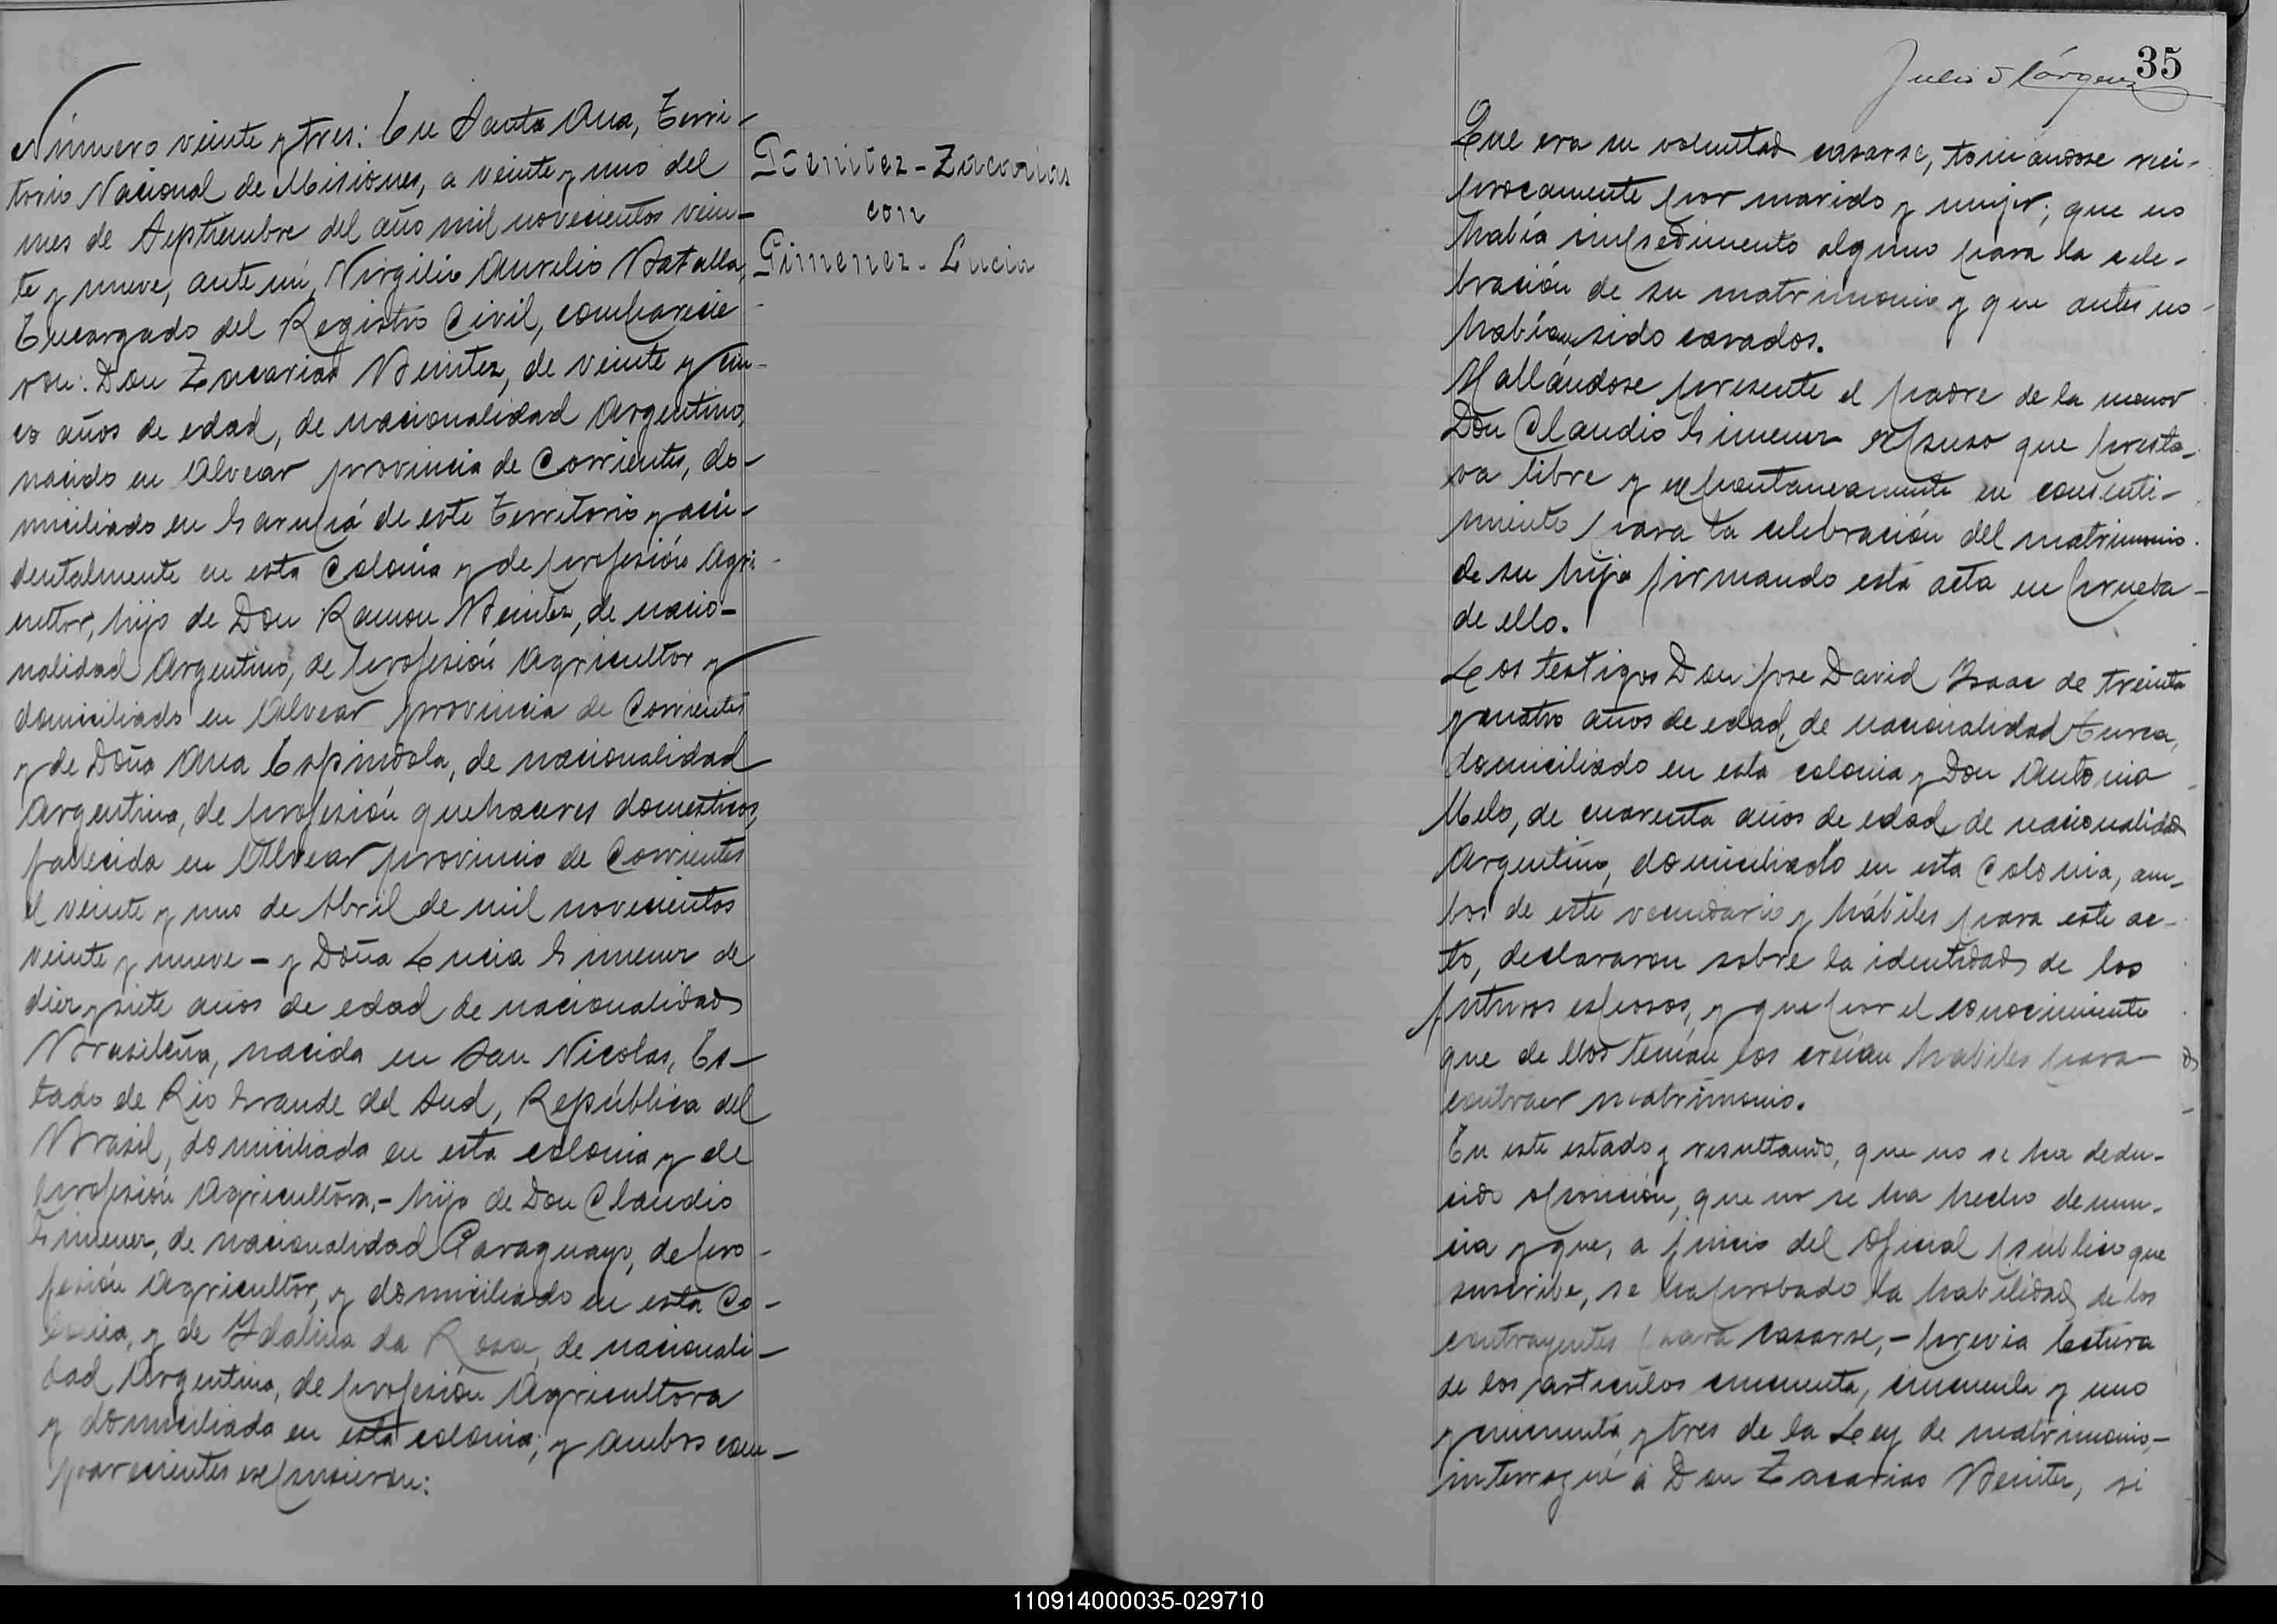 Número veinte y tres: En Santa Ana, Terri-
torio Nacional de Misiones, a veinte y uno del
mes de Septiembre del año mil novecientos vein-
te y nueve, ante mí, Virgilio Aurelio Batalla,
Encargado del Registro Civil, comparecie
ron: Don Zacarias Benitez, de veinte y cin-
co años de edad, de nacionalidad Argentino,
nacido en Alvear provincia de Corrientes, do-
miciliado en Garupá de este Territorio y acci-
dentalmente en esta Colonia y de profesión Agri-
cultor, hijo de Don Ramon Benitez, de nacio-
nalidad Argentino, de profesión Agricultor y
domiciliado en Alvear provincia de Corrientes
y de Doña Ana Espindola, de nacionalidad
Argentina, de profesión quehaceres domesticos,
fallecida en Alvear provincia de Corrientes
el veinte y uno de Abril de mil novecientos
veinte y nueve - y Doña Lucia Gimenez de
diez y siete años de edad de nacionalidad
Brasileña, nacida en San Nicolas, Es-
tado de Rio Grande del Sud, República del
Brasil, domiciliada en esta colonia y de
profesión Agricultora, - hija de Don Claudio
Gimenez, de nacionalidad Paraguayo, de pro-
fesión Agricultor, y domiciliado en esta Co-
lonia, y de Idalina da Rosa, de nacionali-
dad Argentina, de profesión Agricultora
y domiciliada en esta colonia; y ambos com-
parecientes expusieron:
Benitez - Zacarías
con
Gimenez - Lucia
35
Julio
Que era su voluntad casarse, tomándose recí-
procamente por marido y mujer; que no
había impedimento alguno para la cele-
bración de su matrimonio y que antes no
habían sido casados.
Hallándose presente el padre de la menor
Don Claudio Gimenez expuso que presta-
va libre y expontaneamente su consenti-
miento para la celebración del matrimonio
de su hija firmando esta acta en prueba
de ello.
Los testigos Don Jose David Isaac de treinta
y cuatro años de edad, de nacionalidad turca,
domiciliado en esta colonia y Don Antonio
Melo, de cuarenta años de edad de nacionalidad
Argentino, domiciliado en esta Colonia, am-
bos de este vecindario y hábiles para este ac-
to, declararon sobre la identidad de los
futuros esposos, y que por el conocimiento
que de ellos tenían los creían habiles para
contraer matrimonio.
En este estado y resultando, que no se ha dedu-
cido oposición, que no se ha hecho denun-
cia y que, a juicio del oficial publico que
suscribe, se ha probado la habilidad de los
contrayentes para casarse, - previa lectura
de los articulos cincuenta, cincuenta y uno
y cincuenta y tres de la Ley de matrimonio,-
interrogué á Don Zacarias Benitez, si
110914000035-029710